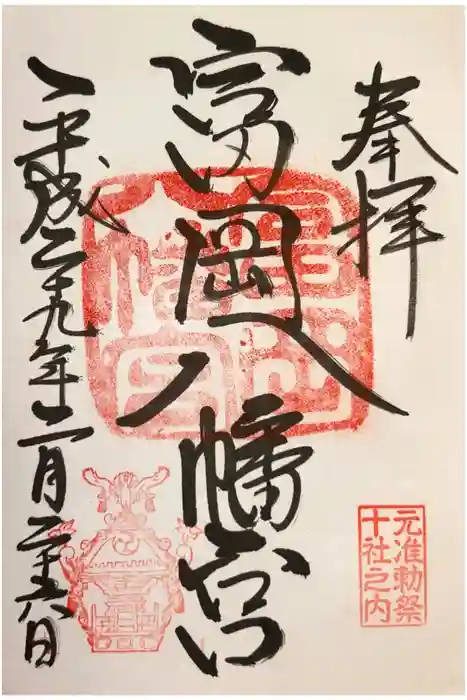 奉拝
富岡八幡宮
平成二十九年二月二十六日
富岡八幡宮
元准勅祭
十社之内